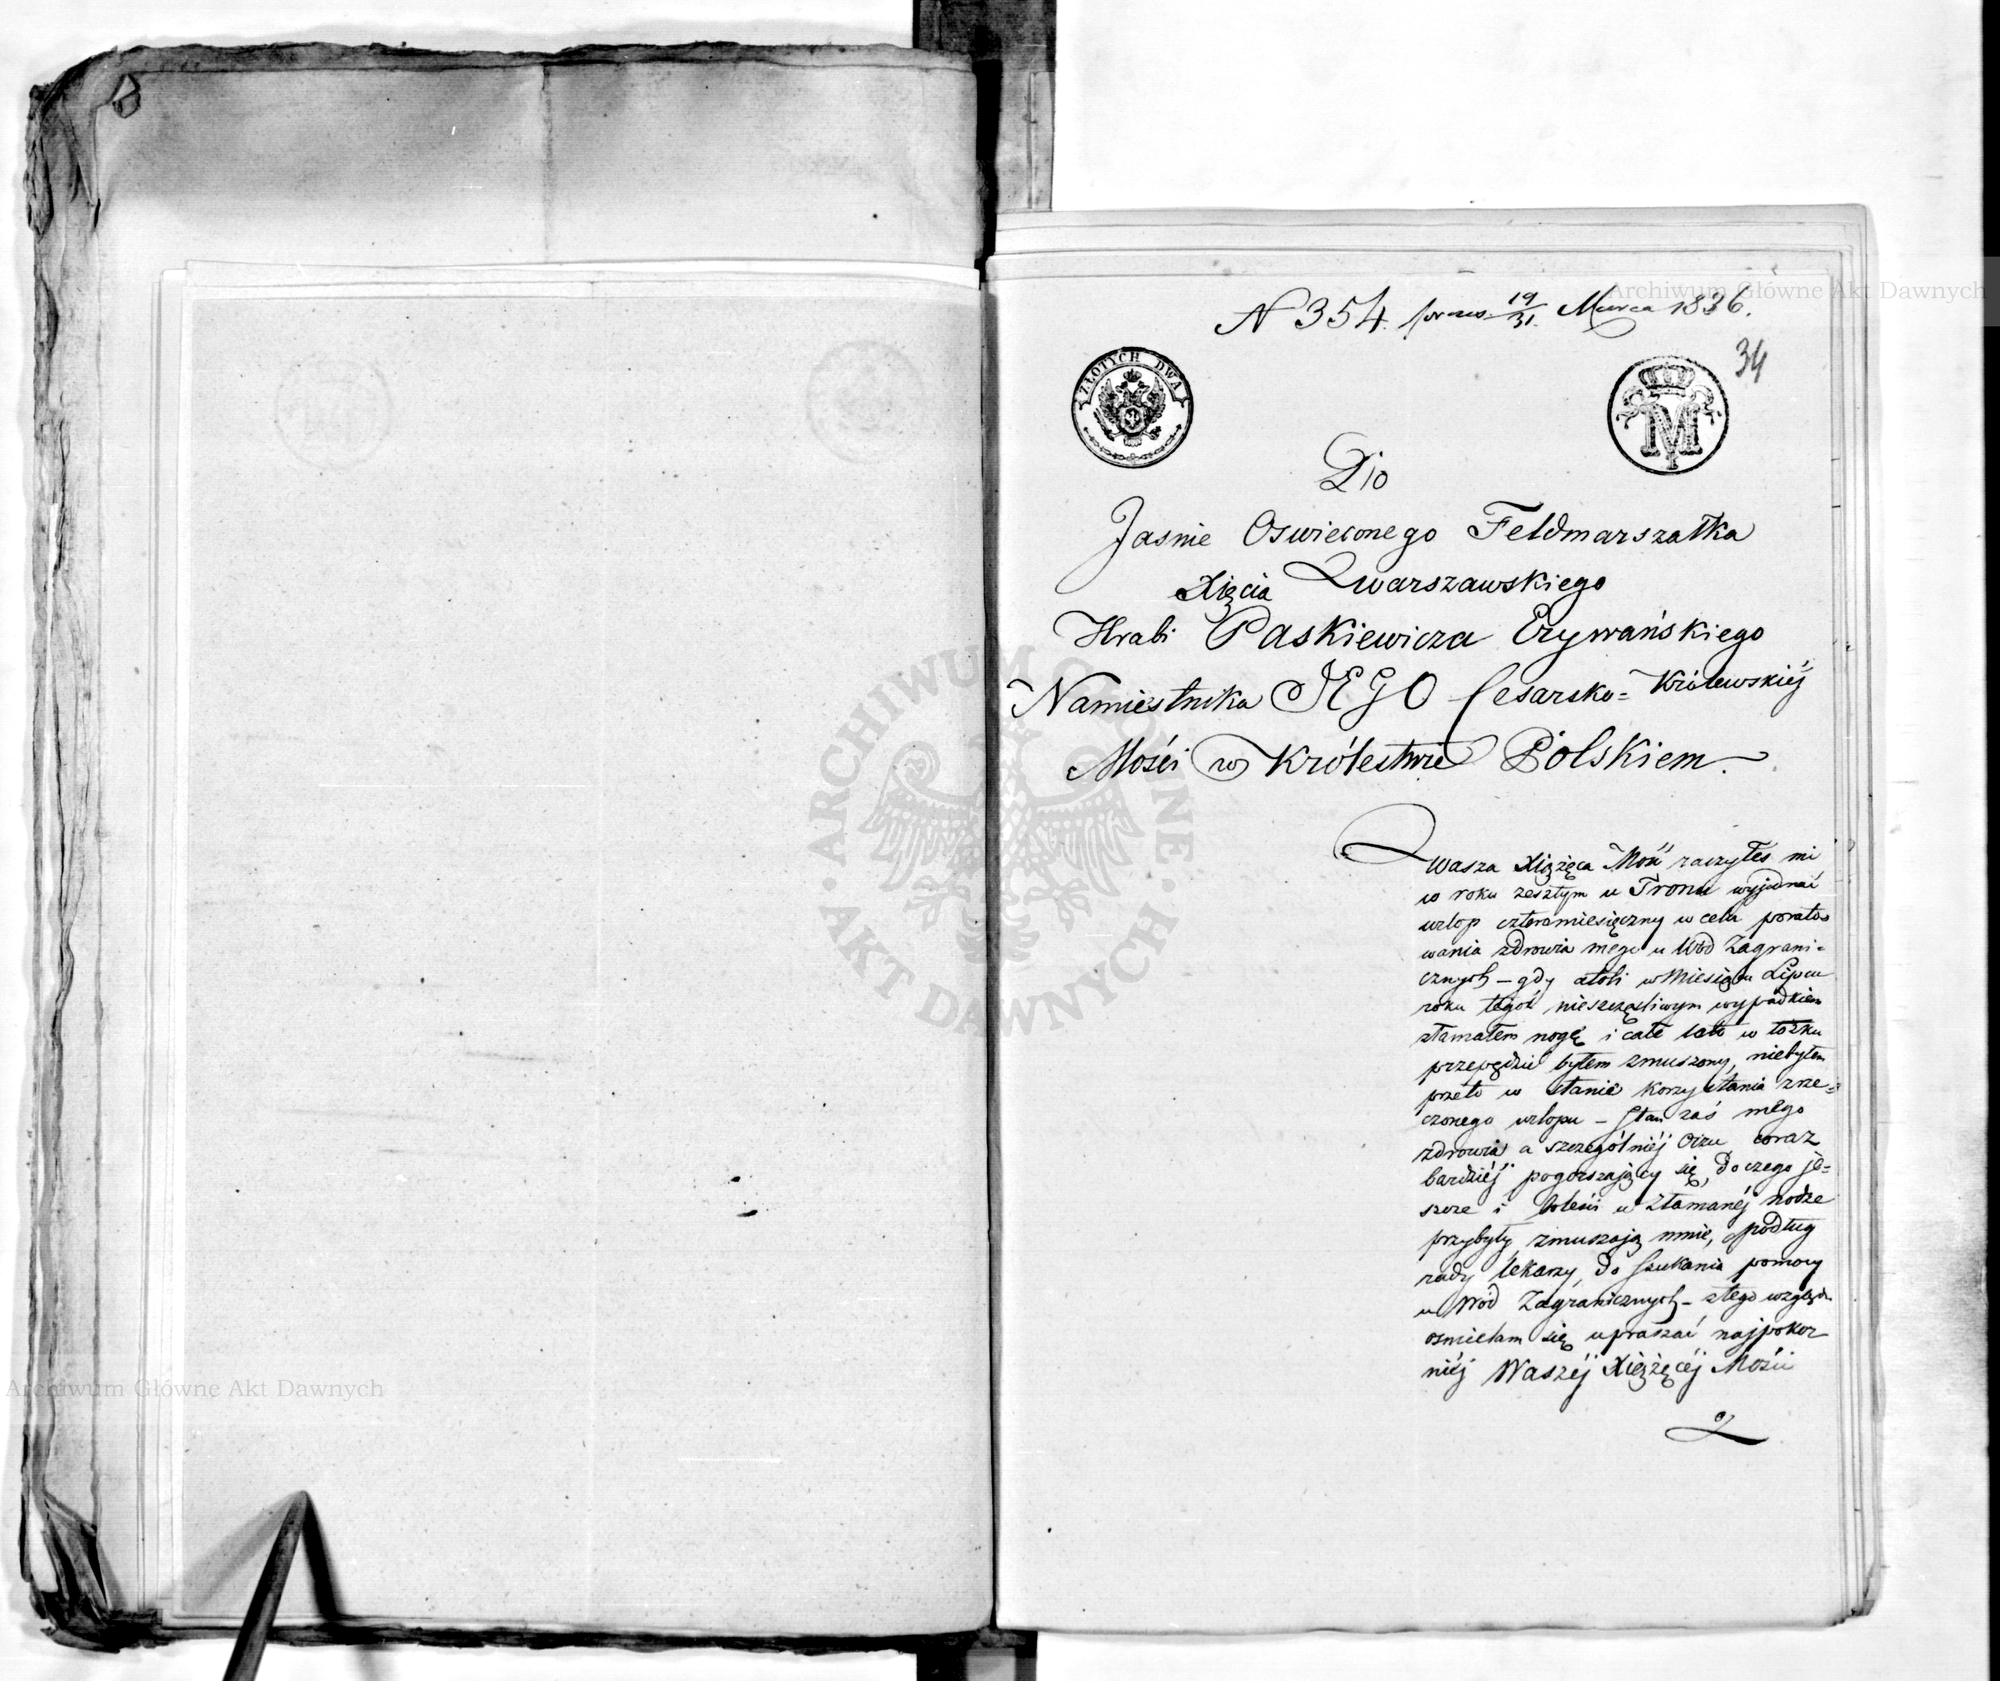 N 354. praes. 19/31. Marca 1836.
34
ZŁOTYCH DWA
M
Do
Jasnie Oswieconego Feldmarszałka
Xięcia Warszawskiego
Hrabi Paskiewicza Erywańskiego
Namiestnika JEGO Cesarsko=Królewskiéj
Mości w Królestwie Polskiem.
Wasza Xiążęca Mość raczyłes mi
w roku zeszłym u Tronu wyjednać
urlop czteromiesięczny w celu porato=
wania zdrowia mego u Wód Zagrani=
cznych – gdy atoli w Miesiącu Lipcu
roku tegoż nieszczęsliwym wypadkiem
złamałem nogę i całe lato w łóżku
przepędzić byłem zmuszony, niebyłem
przeto w stanie korzystania z rze=
czonego urlopu – Stan zaś mego
zdrowia a szczególniéj Oczu coraz
bardziéj pogorszający się, do czego je=
szcze i boleści w złamanéj nodze
przybyły, zmuszają mnie, podług
rady lekarzy, do szukania pomocy
u Wód Zagranicznych – z tego względu
osmielam się upraszać najpokor
niéj Waszéj Xiążęcéj Mości
ARCHIWUM GŁÓWNE AKT DAWNYCH
Archiwum Główne Akt Dawnych
Archiwum Główne Akt Dawnych